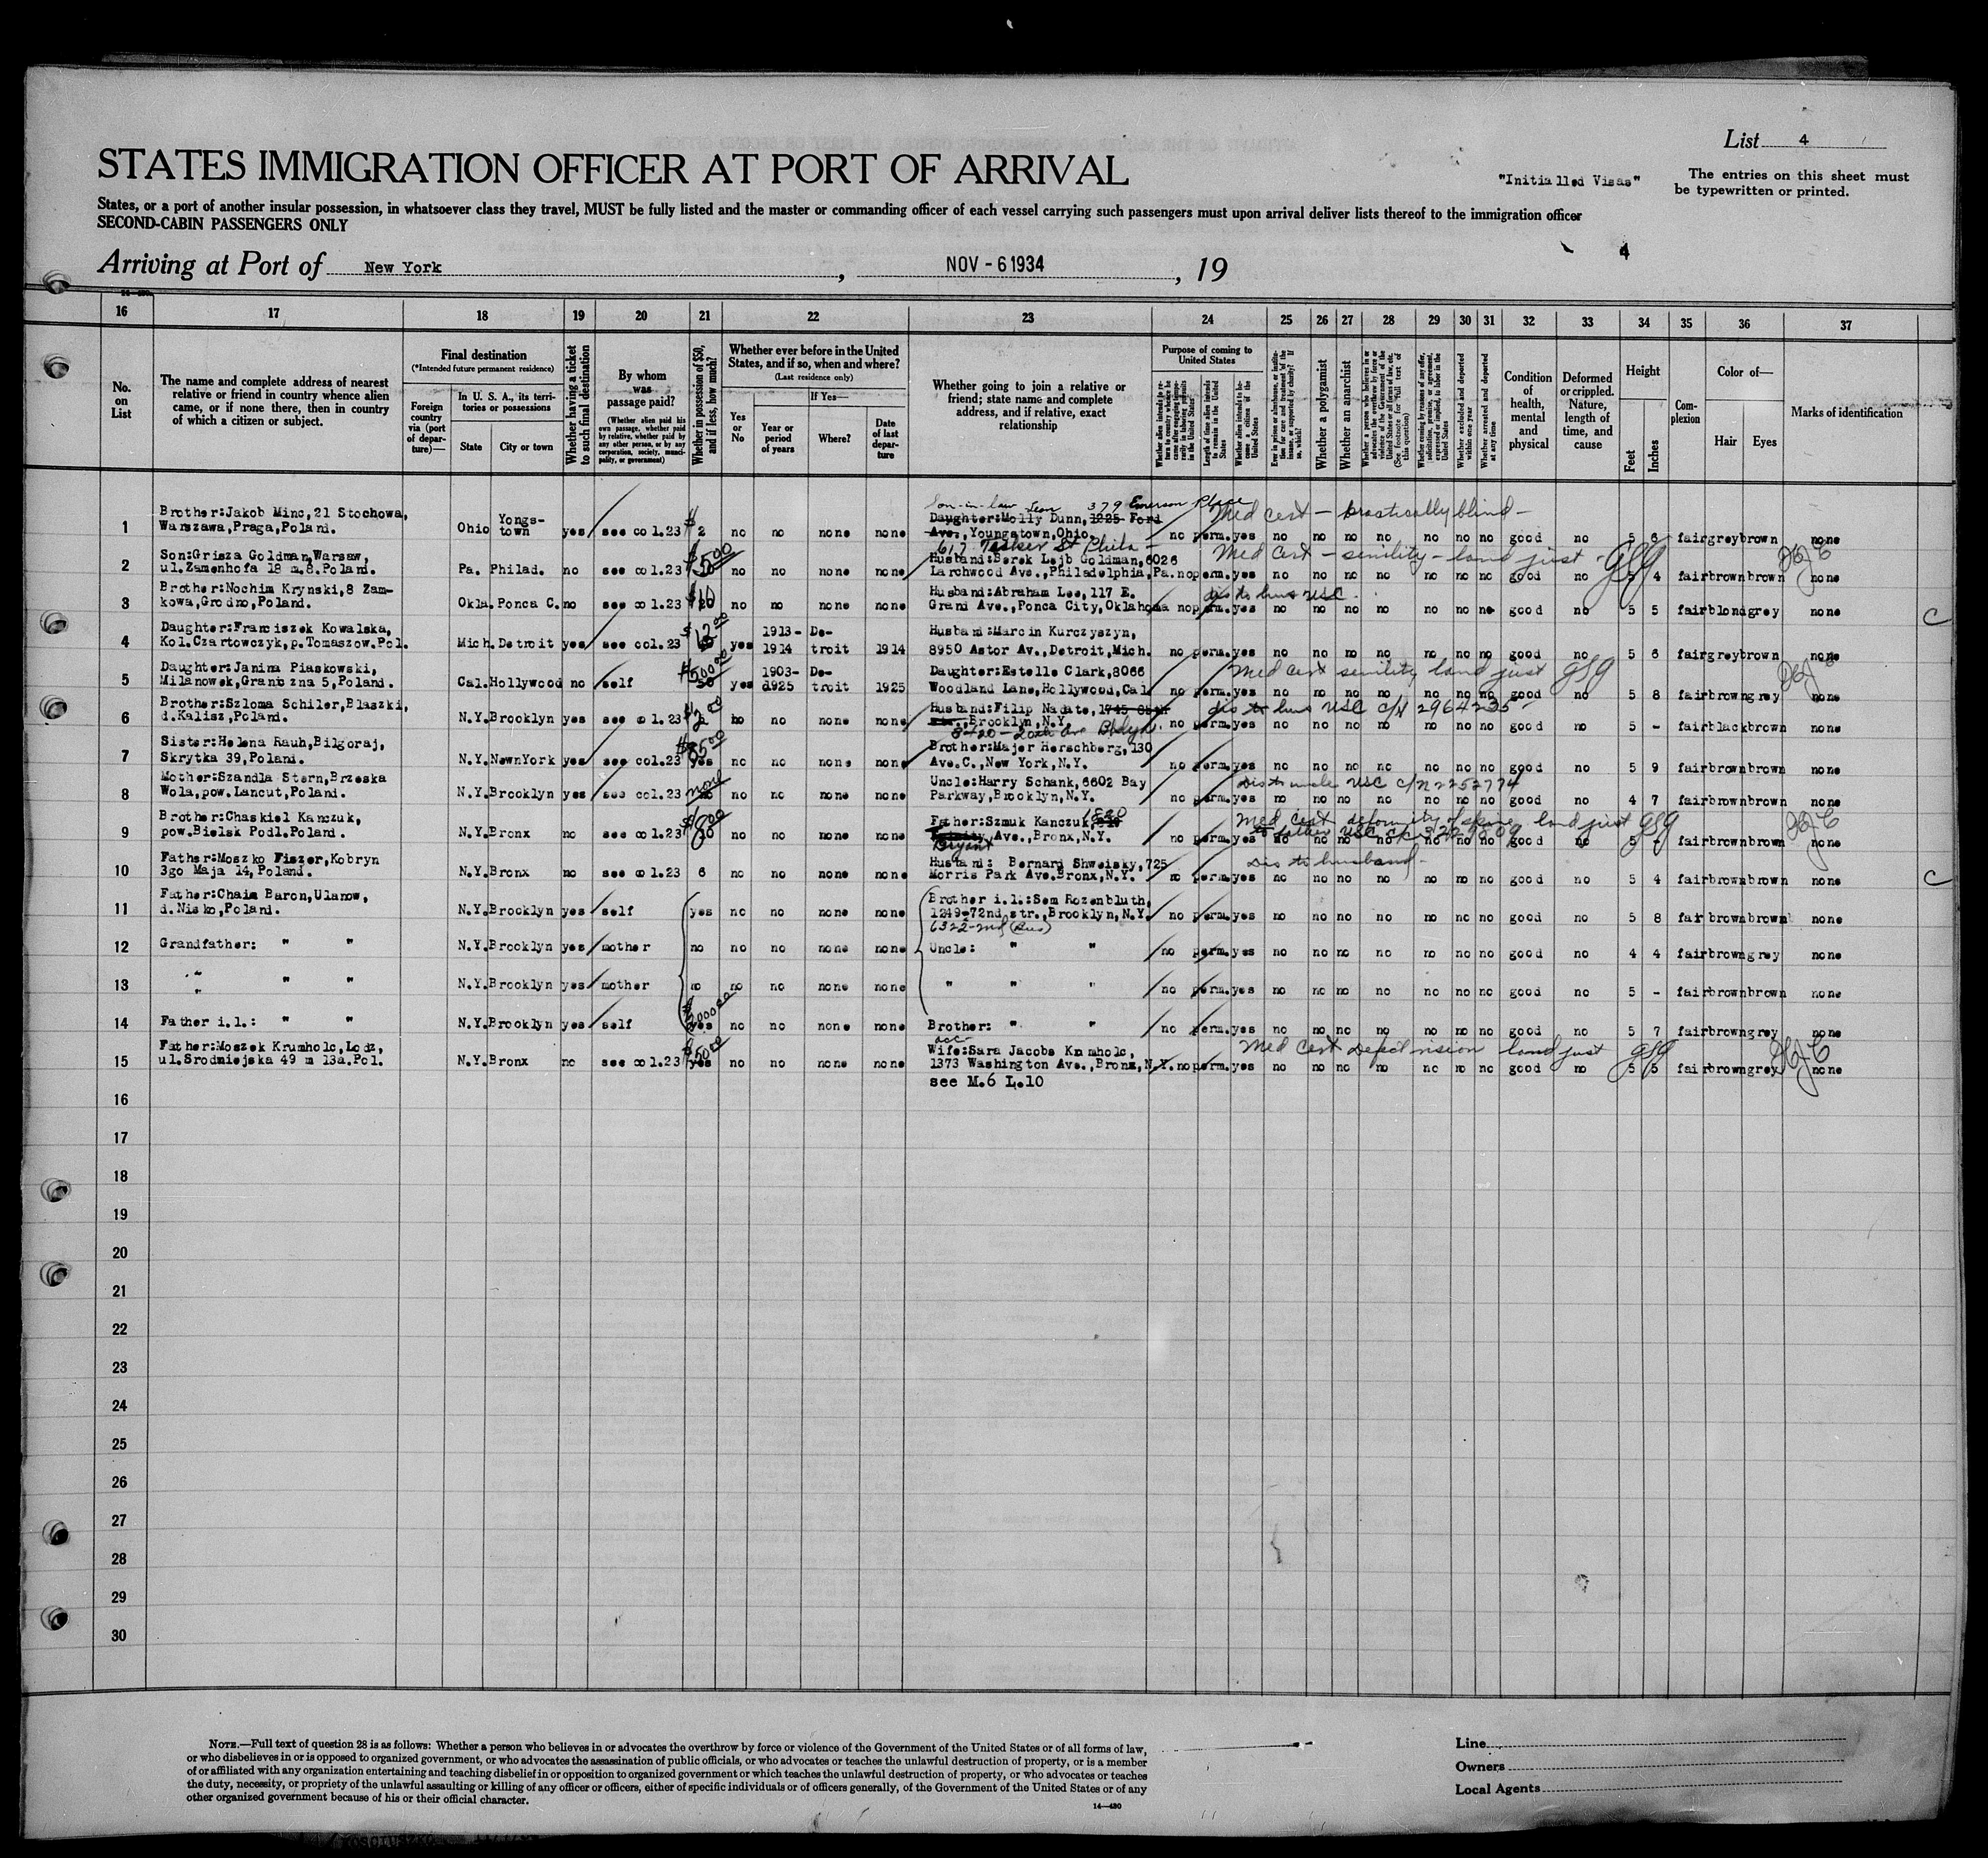 List 4
STATES IMMIGRATION OFFICER AT PORT OF ARRIVAL
"Initialled Visas"
The entries on this sheet must
be typewritten or printed.
States, or a port of another insular possession, in whatsoever class they travel, MUST be fully listed and the master or commanding officer of each vessel carrying such passengers must upon arrival deliver lists thereof to the immigration officer
SECOND-CABIN PASSENGERS ONLY
4
Arriving at Port of New York, NOV - 6 1934, 19
16 17 18 19 20 21 22 23 24 25 26 27 28 29 30 31 32 33 34 35 36 37
No. on List
The name and complete address of nearest relative or friend in country whence alien came, or if none there, then in country of which a citizen or subject.
Final destination
(*Intended future permanent residence)
Foreign country via (port of departure)—
In U. S. A., its territories or possessions
State
City or town
Whether having a ticket to such final destination
By whom was passage paid?
(Whether alien paid his own passage, whether paid by relative, whether paid by any other person, or by any corporation, society, municipality, or government)
Whether in possession of $50, and if less, how much?
Whether ever before in the United States, and if so, when and where?
(Last residence only)
Yes or No
If Yes—
Year or period of years
Where?
Date of last departure
Whether going to join a relative or friend; state name and complete address, and if relative, exact relationship
Purpose of coming to United States
Length of time alien intends to remain in the United States
Whether alien intends to become a citizen of the United States
Whether a polygamist
Whether an anarchist
Whether excluded and deported within one year
Whether arrested and deported at any time
Condition of health, mental and physical
Deformed or crippled. Nature, length of time, and cause
Height
Feet
Inches
Complexion
Color of—
Hair
Eyes
Marks of identification
Son-in-law Leon 379 Emerson Place
Med cert — practically blind —
1 Brother:Jakob Minc, 21 Stochowa, Warszawa,Praga,Poland. Ohio Yongstown yes see col.23 $2 no no none none Daughter:Molly Dunn, 1225 Ford Ave., Youngstown,Ohio. no perm. yes no no no no no no no good no 5 6 fair grey brown none
617 Tasker St Phila —
Med Cert — senility — land just GSG
2 Son:Grisza Goldman,Warsaw, ul.Zamenhofa 18 m.8.Poland. Pa. Philad. no see col.23 $500 no no none none Husband:Berek Lejb Goldman,6026 Larchwood Ave.,Philadelphia,Pa. no perm. yes no no no no no no no good no 5 4 fair brown brown none
dis to hus USC.
3 Brother:Nochim Krynski,8 Zamkowa,Grodno,Poland. Okla. Ponca C. no see col.23 $10 no no none none Husband:Abraham Lee, 117 E. Grand Ave.,Ponca City,Oklahoma no perm. yes no no no no no no no good no 5 5 fair blond grey none C
4 Daughter:Franciszek Kowalska, Kol.Czartowczyk,p.Tomaszow.Pol. Mich. Detroit yes see col.23 $12.00 yes 1913-1914 Detroit 1914 Husband:Marcin Kurczyszyn, 8950 Astor Av.,Detroit,Mich. no perm. yes no no no no no no no good no 5 6 fair grey brown none
Med Cert senility land just GSG
5 Daughter:Janina Piaskowski, Milanowek,Graniczna 5,Poland. Cal. Hollywood no self $500.00 50 yes 1903-1925 Detroit 1925 Daughter:Estelle Clark,8066 Woodland Lane,Hollywood,Cal. no perm. yes no no no no no no no good no 5 8 fair brown grey none
dis to hus USC C/N 2964235
6 Brother:Szloma Schiler,Blaszki, d.Kalisz,Poland. N.Y. Brooklyn yes see col.23 $2.00 no no none none Husband:Filip Nadate, 1745 Brooklyn,N.Y. no perm. yes no no no no no no no good no 5 - fair black brown none
8420 — 20th Ave Bklyn.
7 Sister:Helena Rauh,Bilgoraj, Skrytka 39,Poland. N.Y. NewYork yes see col.23 yes no no none none Brother:Majer Herschberg, 130 Ave.C.,New York,N.Y. no perm. yes no no no no no no no good no 5 9 fair brown brown none
Dis to uncle USC C/N 2252774
8 Mother:Szandla Stern,Brzeska Wola,pow.Lancut,Poland. N.Y. Brooklyn yes see col.23 none no no none none Uncle:Harry Schank,6602 Bay Parkway,Brooklyn,N.Y. no perm. yes no no no no no no no good no 4 7 fair brown brown none
Med Cert deformity of spine land just GSG
to father USC C/N 3229809
9 Brother:Chaskiel Kanczuk, pow.Bielsk Podl.Poland. N.Y. Bronx no see col.23 $8.00 no no none none Father:Szmuk Kanczuk, 1820 Bryant Ave.,Bronx,N.Y. no perm. yes no no no no no no no good no 5 - fair brown brown none
Dis to husband —
10 Father:Moszko Fiszer,Kobryn 3go Maja 14,Poland. N.Y. Bronx no see col.23 6 no no none none Husband: Bernard Shweisky,725 Morris Park Ave.Bronx,N.Y. no perm. yes no no no no no no no good no 5 4 fair brown brown none C
11 Father:Chaim Baron,Ulanow, d.Nisko,Poland. N.Y. Brooklyn yes self yes no no none none Brother i.l.:Sem Rozenbluth, 1249-72nd str.,Brooklyn,N.Y. no perm. yes no no no no no no no good no 5 8 fair brown brown none
12 Grandfather: " " N.Y. Brooklyn yes mother no no no none none Uncle: " " no perm. yes no no no no no no no good no 4 4 fair brown grey none
13 " " " N.Y. Brooklyn yes mother no no no none none " " " no perm. yes no no no no no no no good no 5 - fair brown brown none
14 Father i.l.: " " N.Y. Brooklyn yes self yes no no none none Brother: " " no perm. yes no no no no no no no good no 5 7 fair brown grey none
Med Cert Defect vision land just GSG
15 Father:Moszek Krumholc,Lodz, ul.Srodmiejska 49 m 13a.Pol. N.Y. Bronx no see col.23 yes no no none none Wife:Sara Jacobs Krumholc, 1373 Washington Ave.,Bronx,N.Y. no perm. yes no no no no no no no good no 5 5 fair brown grey none
see M.6 L.10
16
17
18
19
20
21
22
23
24
25
26
27
28
29
30
NOTE.—Full text of question 28 is as follows: Whether a person who believes in or advocates the overthrow by force or violence of the Government of the United States or of all forms of law,
or who disbelieves in or is opposed to organized government, or who advocates the assassination of public officials, or who advocates or teaches the unlawful destruction of property, or is a member
of or affiliated with any organization entertaining and teaching disbelief in or opposition to organized government or which teaches the unlawful destruction of property, or who advocates or teaches
the duty, necessity, or propriety of the unlawful assaulting or killing of any officer or officers, either of specific individuals or of officers generally, of the Government of the United States or of any
other organized government because of his or their official character.
14—430
Line
Owners
Local Agents